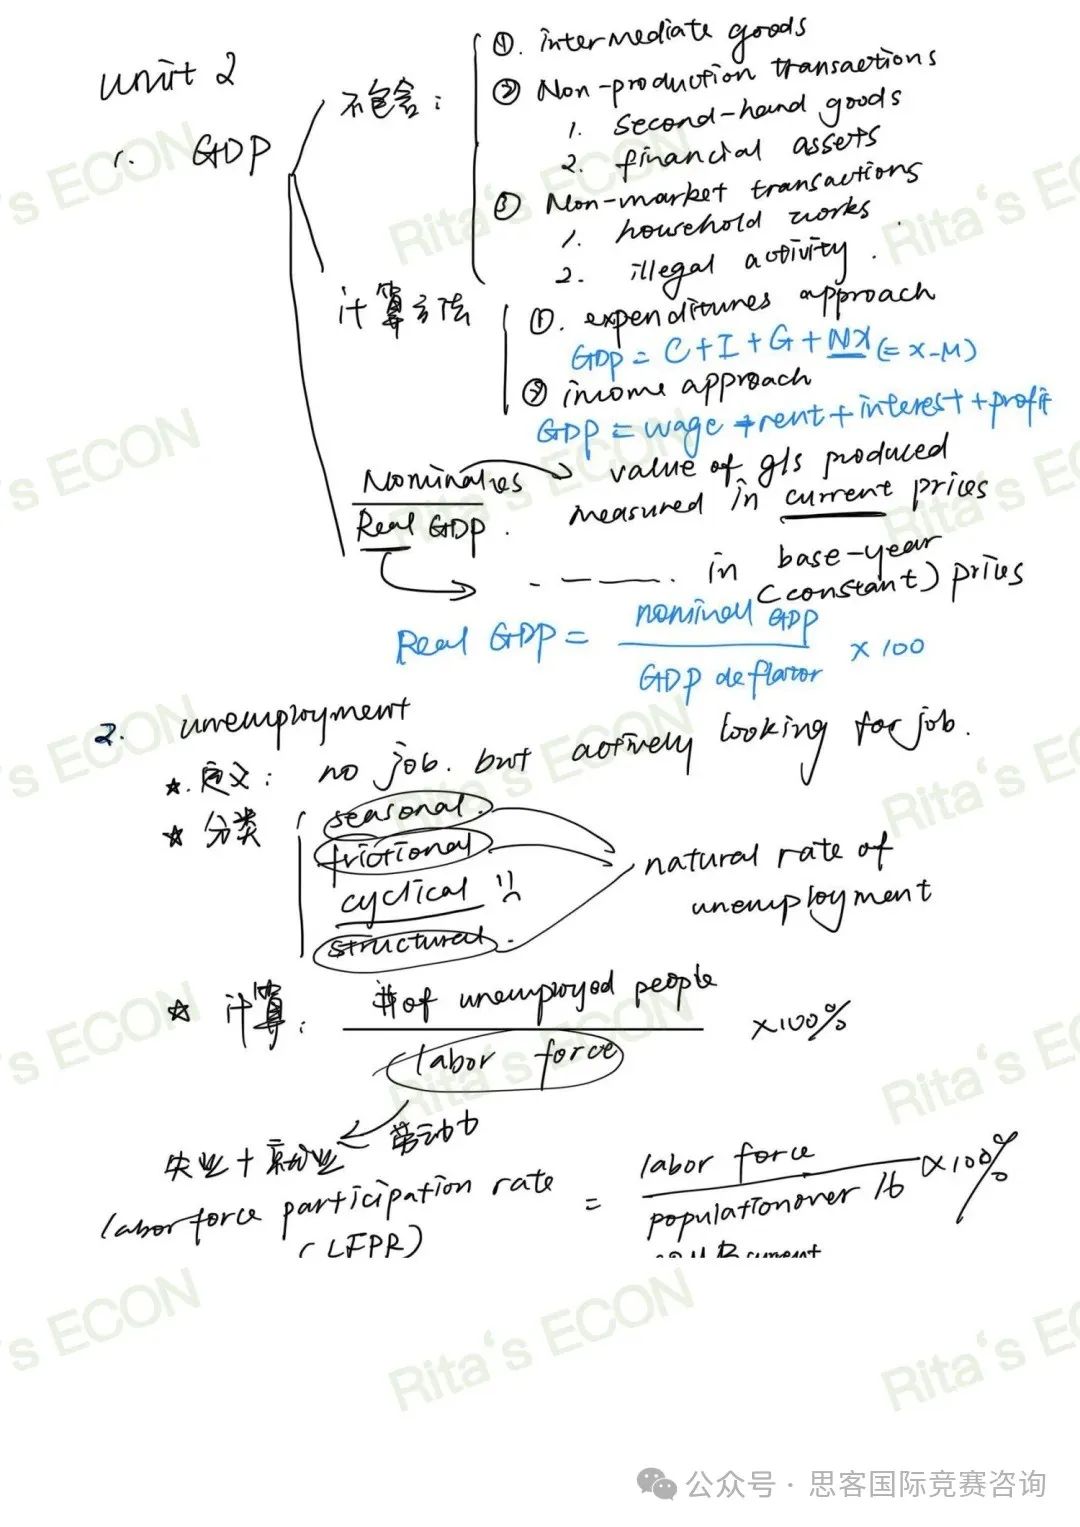 unit 2
1. GDP
不包含：
①. intermediate goods
② Non-production transactions
1. second-hand goods
2. financial assets
③ Non-market transactions
1. household works
2. illegal activity.
计算方法
①. expenditures approach
GDP = C + I + G + NX (= X-M)
② income approach
GDP = wage + rent + interest + profit
Nominal vs
Real GDP.
value of g/s produced
measured in current prices
in base-year
(constant) prices
Real GDP = nominal GDP / GDP deflator × 100
2. unemployment
☆. 定义： no job. but actively looking for job.
☆ 分类
seasonal.
frictional
cyclical
structural.
natural rate of
unemployment
☆ 计算：
# of unemployed people
labor force
×100%
劳动力
失业 + 就业
labor force participation rate
(LFPR)
=
labor force
population over 16
×100%
Rita's ECON
公众号 · 思客国际竞赛咨询